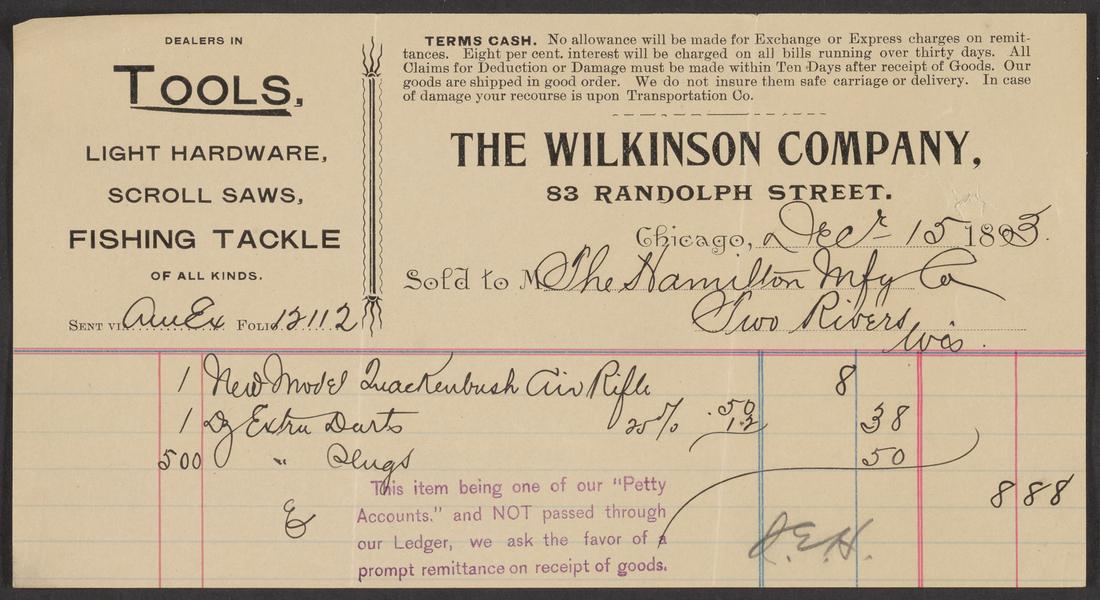 DEALERS IN
TOOLS,
LIGHT HARDWARE,
SCROLL SAWS,
FISHING TACKLE
OF ALL KINDS.
SENT VIA Am Ex FOLIO 12112
TERMS CASH. No allowance will be made for Exchange or Express charges on remit-
tances. Eight per cent. interest will be charged on all bills running over thirty days. All
Claims for Deduction or Damage must be made within Ten Days after receipt of Goods. Our
goods are shipped in good order. We do not insure them safe carriage or delivery. In case
of damage your recourse is upon Transportation Co.
THE WILKINSON COMPANY,
83 RANDOLPH STREET.
Chicago, Decr 15 1893.
Sold to M The Hamilton Mfg Co
Two Rivers
Wis.
1 New Model Quackenbush Air Rifle 8
1 Dz Extra Darts 25% .50 12 38
500 " Slugs 50
8 88
This item being one of our "Petty
Accounts." and NOT passed through
our Ledger, we ask the favor of a
prompt remittance on receipt of goods.
J.E.H.